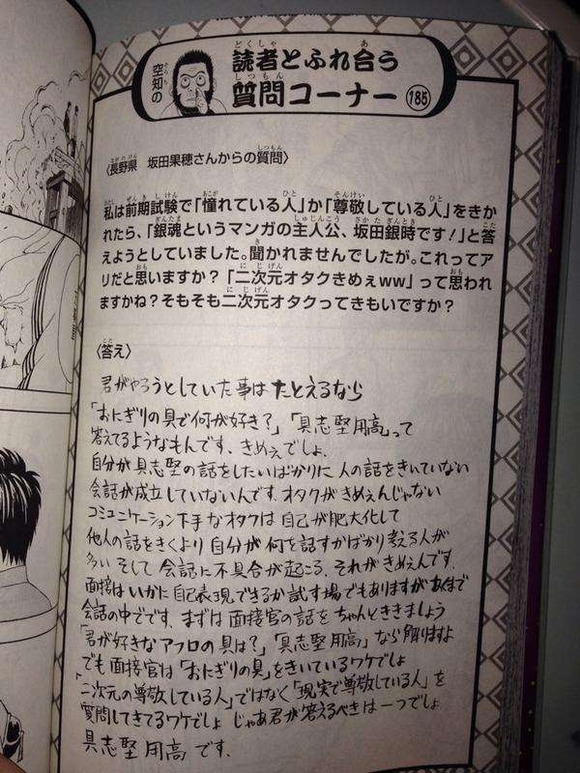 空知の
読者とふれ合う
質問コーナー 185
〈長野県 坂田果穂さんからの質問〉
私は前期試験で「憧れている人」か「尊敬している人」をきか
れたら、「銀魂というマンガの主人公、坂田銀時です！」と答
えようとしていました。聞かれませんでしたが。これってア
リだと思いますか？「二次元オタクきめぇww」って思われ
ますかね？そもそも二次元オタクってきもいですか？
〈答え〉
君がやろうとしていた事はたとえるなら
「おにぎりの具で何が好き？」「具志堅用高」って
答えてるようなもんです、きめぇでしょ、
自分が具志堅の話をしたいばかりに人の話をきいていない
会話が成立していないんです、オタクがきめぇんじゃない
コミュニケーション下手なオタクは自己が肥大化して
他人の話をきくより自分が何を話すかばかり考える人が
多いそして会話に不具合が起こる、それがきめぇんです、
面接はいかに自己表現できるか試す場でもありますがあくまで
会話の中でです、まずは面接官の話をちゃんとききましょう
「君が好きなアフロの具は？」「具志堅用高」なら解りますよ
でも面接官は「おにぎりの具」をきいているワケでしょ
「二次元の尊敬している人」ではなく「現実で尊敬している人」を
質問してきてるワケでしょ じゃあ君が答えるべきは一つでしょ
具志堅用高です、